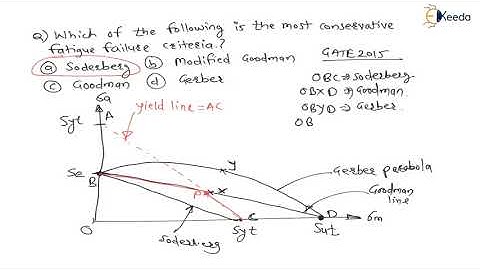 Keeda
Q) Which of the following is the most conservative
fatigue failure criteria.?
(a) Soderberg (b) Modified Goodman
(c) Goodman (d) Gerber
GATE 2015
OBC ⇒ Soderberg
OBXD ⇒ Goodman.
OBYD ⇒ Gerber
OB
σa
Syt A
yield line = AC
Se
B
P X
y
Gerber parabola
Goodman
line
O
C D
Syt Sut σm
Soderberg